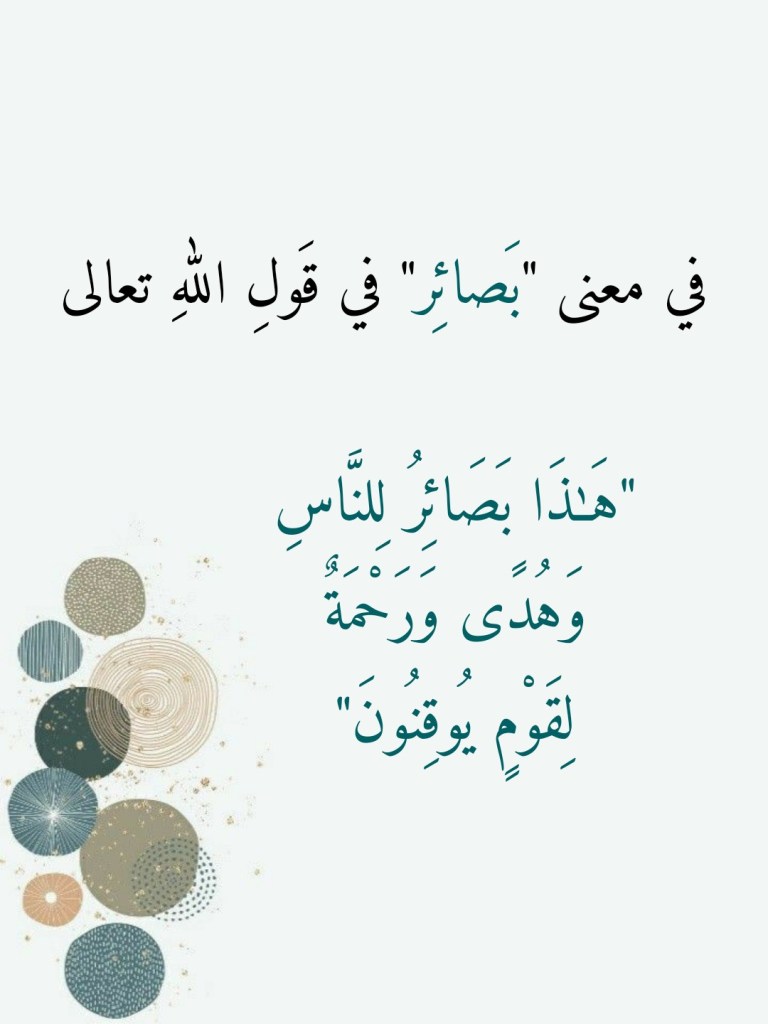 في معنى "بَصائِر" في قَولِ اللهِ تعالى
"هَـٰذَا بَصَائِرُ لِلنَّاسِ
وَهُدًى وَرَحْمَةٌ
لِقَوْمٍ يُوقِنُونَ"